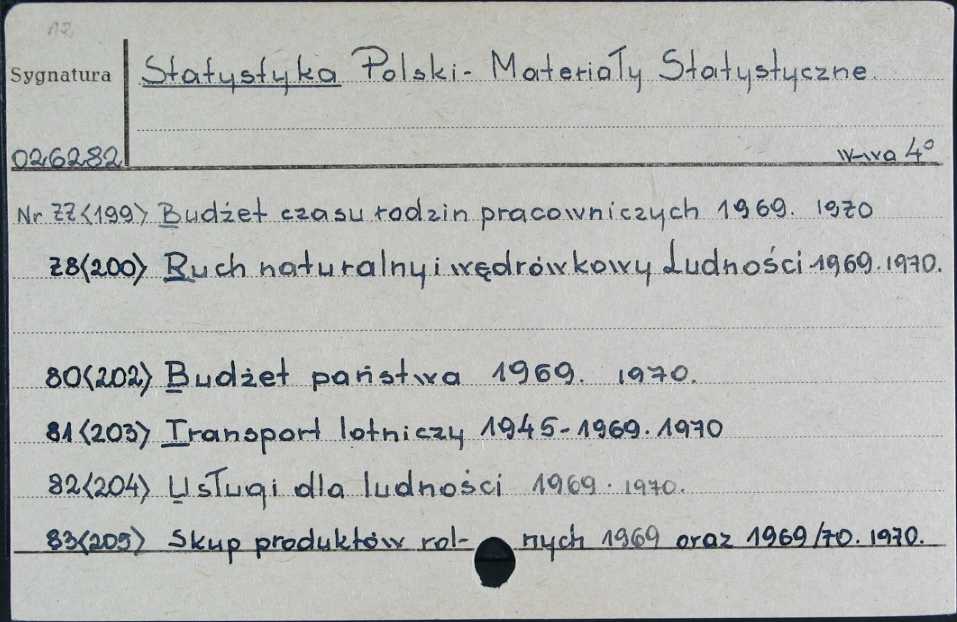 12
Sygnatura
Statystyka Polski - Materiały Statystyczne.
026282
W-wa 4°
Nr 77<199> Budżet czasu rodzin pracowniczych 1969. 1970
78<200> Ruch naturalny i wędrówkowy Ludności 1969. 1970.
80<202> Budżet państwa 1969. 1970.
81<203> Transport lotniczy 1945-1969. 1970
82<204> Usługi dla ludności 1969. 1970.
83<205> Skup produktów rol- nych 1969 oraz 1969/70. 1970.